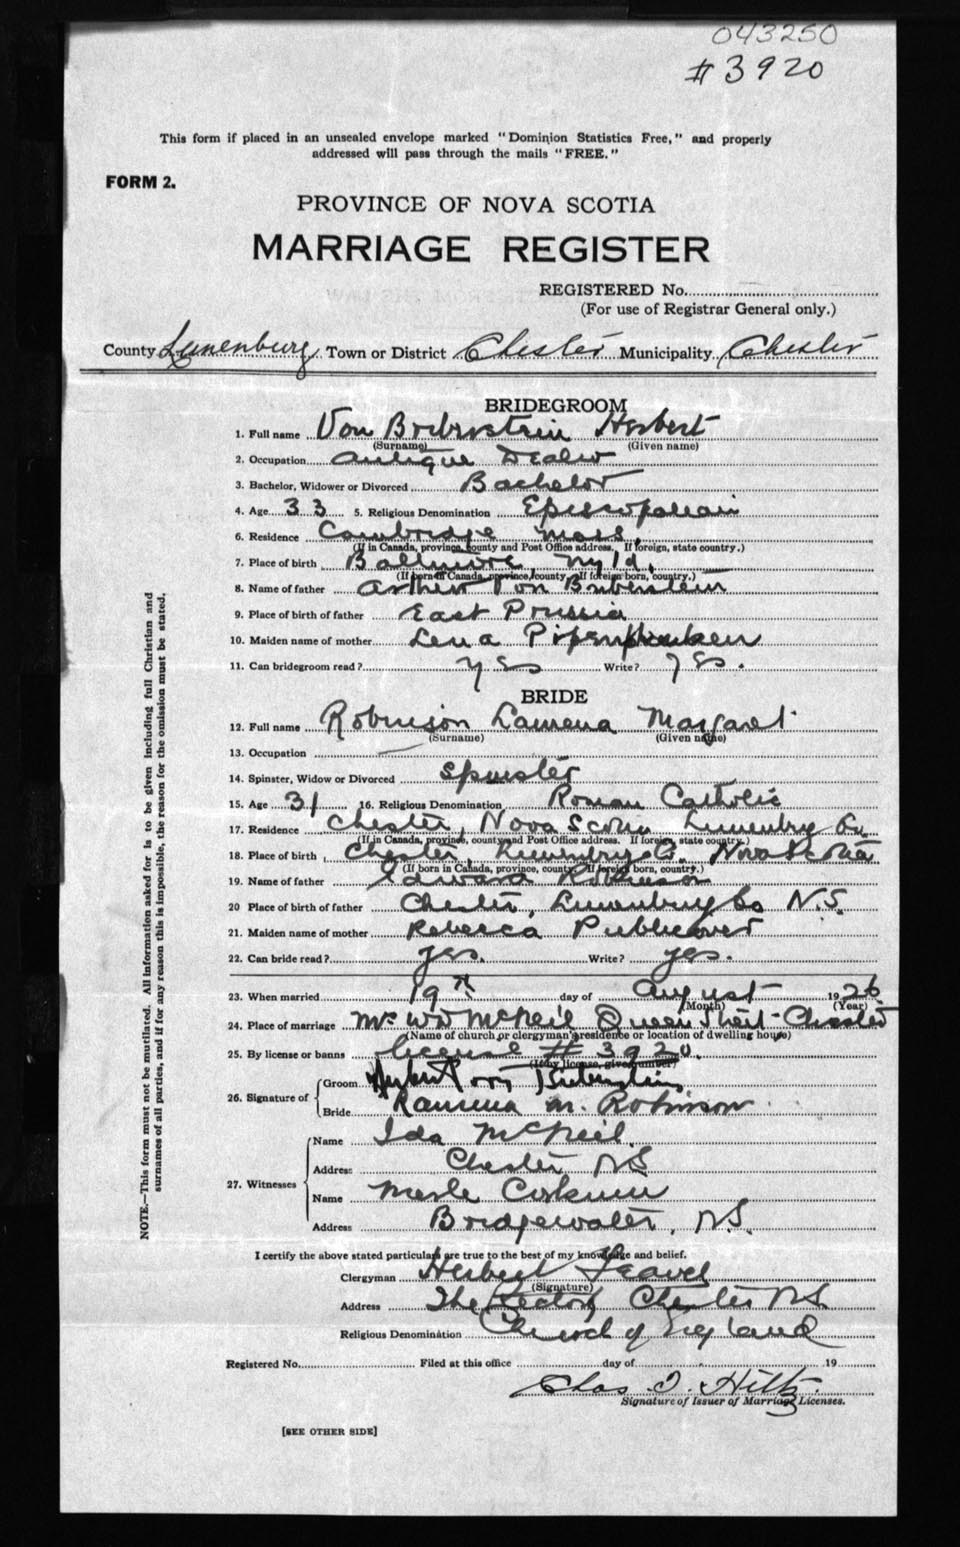 043250
#3920
This form if placed in an unsealed envelope marked "Dominion Statistics Free," and properly
addressed will pass through the mails "FREE."
FORM 2.
PROVINCE OF NOVA SCOTIA
MARRIAGE REGISTER
REGISTERED No.
(For use of Registrar General only.)
County Lunenburg Town or District Chester Municipality Chester
BRIDEGROOM
1. Full name Von Herbert
(Surname) (Given name)
2. Occupation Antique Dealer
3. Bachelor, Widower or Divorced Bachelor
4. Age 33 5. Religious Denomination Episcopalian
6. Residence Cambridge Mass.
(If in Canada, province, county and Post Office address. If foreign, state country.)
7. Place of birth Baltimore Myld.
(If born in Canada, province, county. If foreign born, country.)
8. Name of father Arthur Von Biberstein
9. Place of birth of father East Prussia
10. Maiden name of mother Lena
11. Can bridegroom read? Yes Write? Yes.
BRIDE
12. Full name Robinson Laurena Margaret
(Surname) (Given name)
13. Occupation —
14. Spinster, Widow or Divorced Spinster
15. Age 31 16. Religious Denomination Roman Catholic
17. Residence Chester, Nova Scotia Lunenburg Co.
(If in Canada, province, county and Post Office address. If foreign, state country.)
18. Place of birth Chester, Lunenburg Co. Nova Scotia
(If born in Canada, province, county. If foreign born, country.)
19. Name of father Edward Robinson
20 Place of birth of father Chester, Lunenburg Co N.S.
21. Maiden name of mother Rebecca Publicover
22. Can bride read? yes. Write? yes.
23. When married 19th day of August 1926
(Month) (Year)
24. Place of marriage Mr WD McNeil Queen Street Chester
(Name of church or clergyman's residence or location of dwelling house)
25. By license or banns license # 3920.
(If by license, give number)
26. Signature of Groom Herbert von Biberstein
Bride Laurena M. Robinson
27. Witnesses Name Ida McNeil
Address Chester NS
Name Merle Corkum
Address Bridgewater, N.S.
I certify the above stated particulars are true to the best of my knowledge and belief.
Clergyman Herbert
(Signature)
Address The Rectory Chester NS
Religious Denomination Church of England
Registered No. Filed at this office day of 19
Chas. O. Hiltz
Signature of Issuer of Marriage Licenses.
[SEE OTHER SIDE]
NOTE.—This form must not be mutilated. All information asked for is to be given including full Christian and
surnames of all parties, and if for any reason this is impossible, the reason for the omission must be stated.